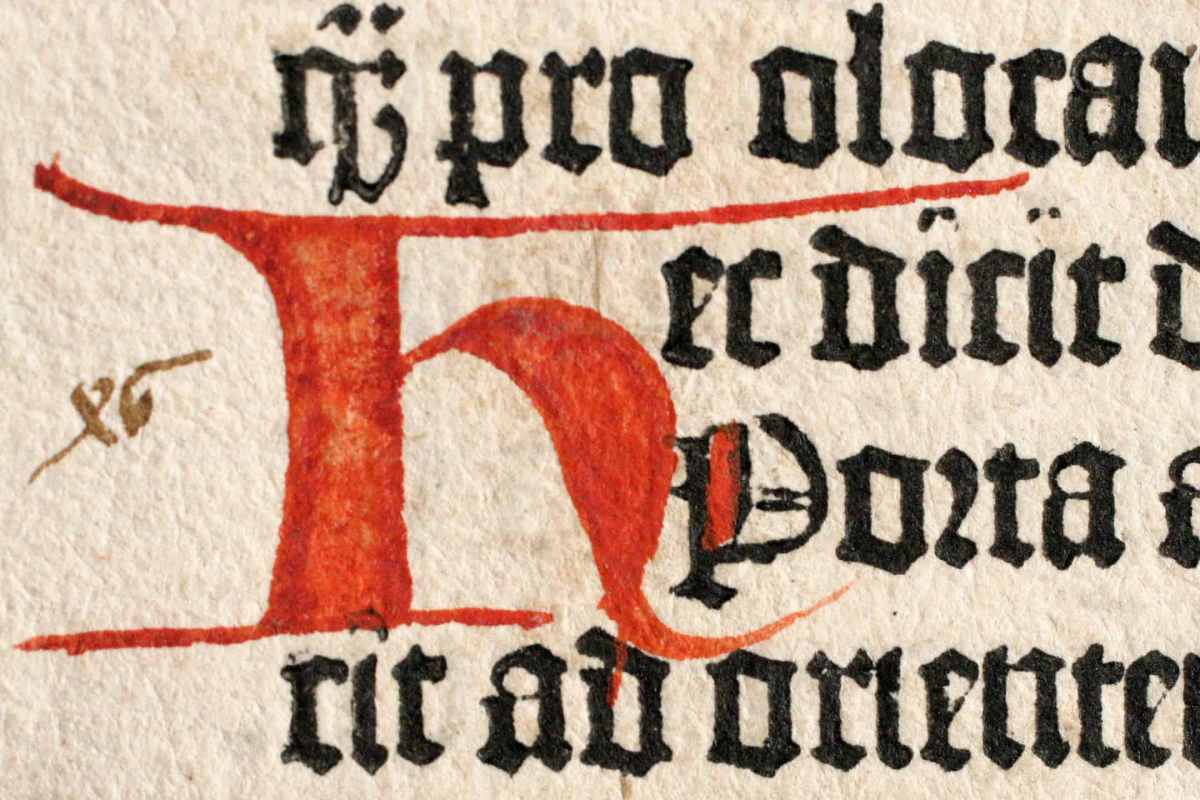 pro olocau
Hec dicit d
Porta a
cit ad oriente